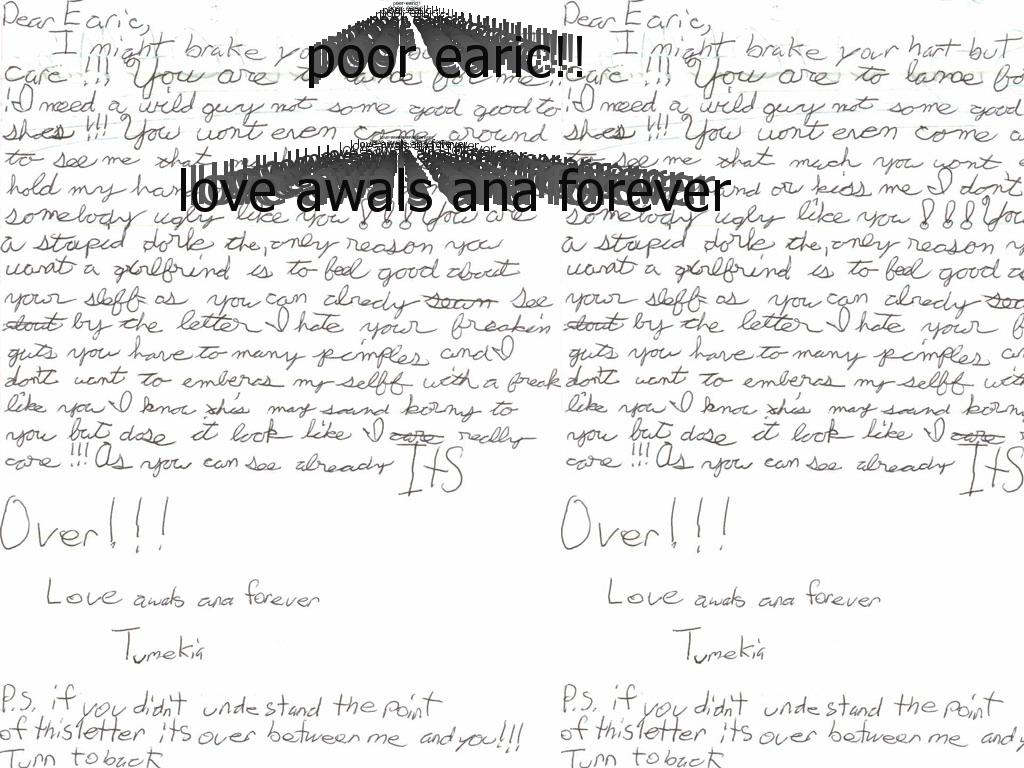 poor earic!!
love awals ana forever
Dear Earic,
I might brake your hart but I
care !!! You are to lame for me !!
I need a wild guy not some good good to
shoes !!! You wont even come around
to see me that much you wont even
hold my hand or kiss me I don't
somebody ugly like you !!! You are
a staped dork the, only reason you
want a girlfrind is to feel good about
your sleff as you can alredy see
by the letter I hate your freakin
guts you have to many pimples and I
dont want to emberas my selff with a freak
like you I know this may sound korny to
you but dose it look like I really
care !!! As you can see already ItS
Over!!!
Love awals ana forever
Tumekia
P.S. if you didn't unde stand the point
of this letter its over between me and you!!!
Turn to back
Dear Earic,
I might brake your hart but
care !!! You are to lame fo
I need a wild guy not some good
shoes !!! You wont even come a
to see me that much you wont e
and or kiss me I don't
somebody ugly like you !!! You
a staped dork the, only reason y
want a girlfrind is to feel good a
your sleff as you can alredy
by the letter I hate your f
guts you have to many pimples an
dont want to emberas my selff with
like you I know this may sound korn
you but dose it look like I
care !!! As you can see already ItS
Over!!!
Love awals ana forever
Tumekia
P.S. if you didn't unde stand the point
of this letter its over between me and y
Turn to back